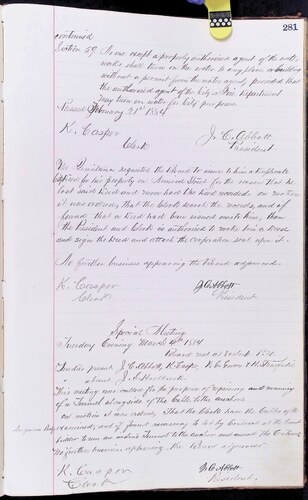 281
continued
Section 59. None except a properly authorized agent of the water
works shall turn on the water to any place or building
without a permit from the water agent, provided that
the authorized agent of the City or Fire Department
may turn on water for City purposes.
Passed February 21st 1884
K. Casper J. C. Abbott
Clerk President
requests the Board to issue to him a duplicate
for his property on Street for the reason that he
lost said Deed and never had the Deed recorded. on motion
it was ordered, That the Clerk search the records, and if
found that a Deed had been issued make him, then
the President and Clerk is authorized to make him a Deed
and sign the Deed and attach the corporation seal upon it.
No further business appearing the Board adjourned.
K. Casper J C Abbott
Clerk President
Special Meeting
Tuesday Evening March 4th 1884
Board met at
present J. C. Abbott, K. Casper,
" absent J. A.
This meeting was called for the purpose of repairing and
of a Tunnel alongside of the
on motion it was ordered, That the Clerk have the
examined, and if found necessary to let by Contract at the lowest
bidder to an Tunnel to the and award the Contract
No further business appearing the Board adjourned
K. Casper J. C. Abbott
Clerk President